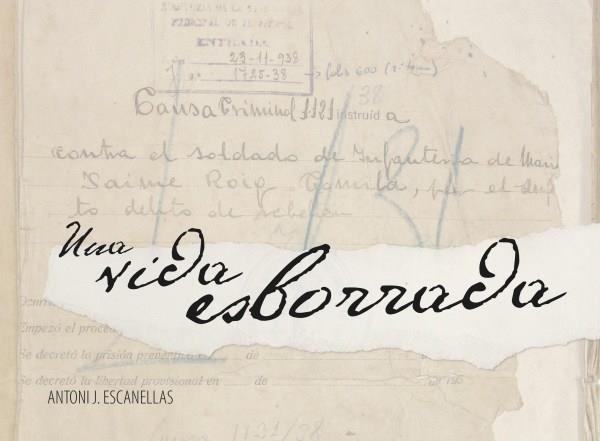 ENTRADA
23-11-938
1725-38
fols 600
38
Causa Criminal 1121 instruid a
contra el soldado de Infanteria de Mari
Jaime Roig Tomila, por el
to delito de rebelion
Una
vida
esborrada
Empezó el proce
Se decretó la prisión preventiva de
Se decretó la libertad provisional en de
ANTONI J. ESCANELLAS
1121/38